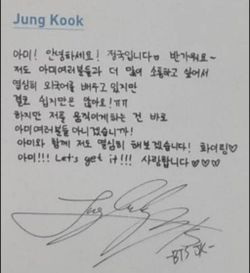 Jung Kook
아미! 안녕하세요! 정국입니다♡ 반가워요~
저도 아미여러분들과 더 많이 소통하고 싶어서
열심히 외국어를 배우고 있지만
결코 쉽지만은 않아요!ㅠㅠ
하지만 저를 움직이게하는 건 바로
아미여러분들 아니겠습니까!
아미와 함께 저도 열심히 해보겠습니다! 화이팅♡
아미!!! Let's get it!!! 사랑합니다♡♡♡
Jung Kook
-BTS JK-